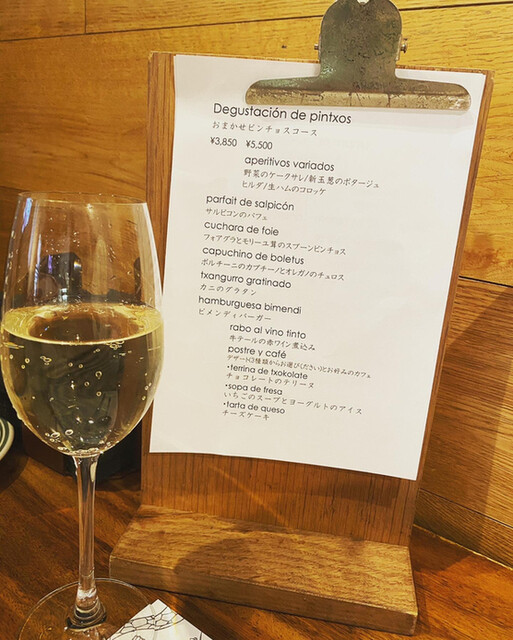 Degustación de pintxos
おまかせピンチョスコース
¥3,850 ¥5,500
aperitivos variados
野菜のケークサレ/新玉葱のポタージュ
ヒルダ/生ハムのコロッケ
parfait de salpicón
サルピコンのパフェ
cuchara de foie
フォアグラとモリーユ茸のスプーンピンチョス
capuchino de boletus
ポルチーニのカプチーノとオレガノのチュロス
txangurro gratinado
カニのグラタン
hamburguesa bimendi
ビメンディバーガー
rabo al vino tinto
牛テールの赤ワイン煮込み
postre y café
デザート(3種類からお選びください)とお好みのカフェ
・terrina de txokolate
チョコレートのテリーヌ
・sopa de fresa
いちごのスープとヨーグルトのアイス
・tarta de queso
チーズケーキ